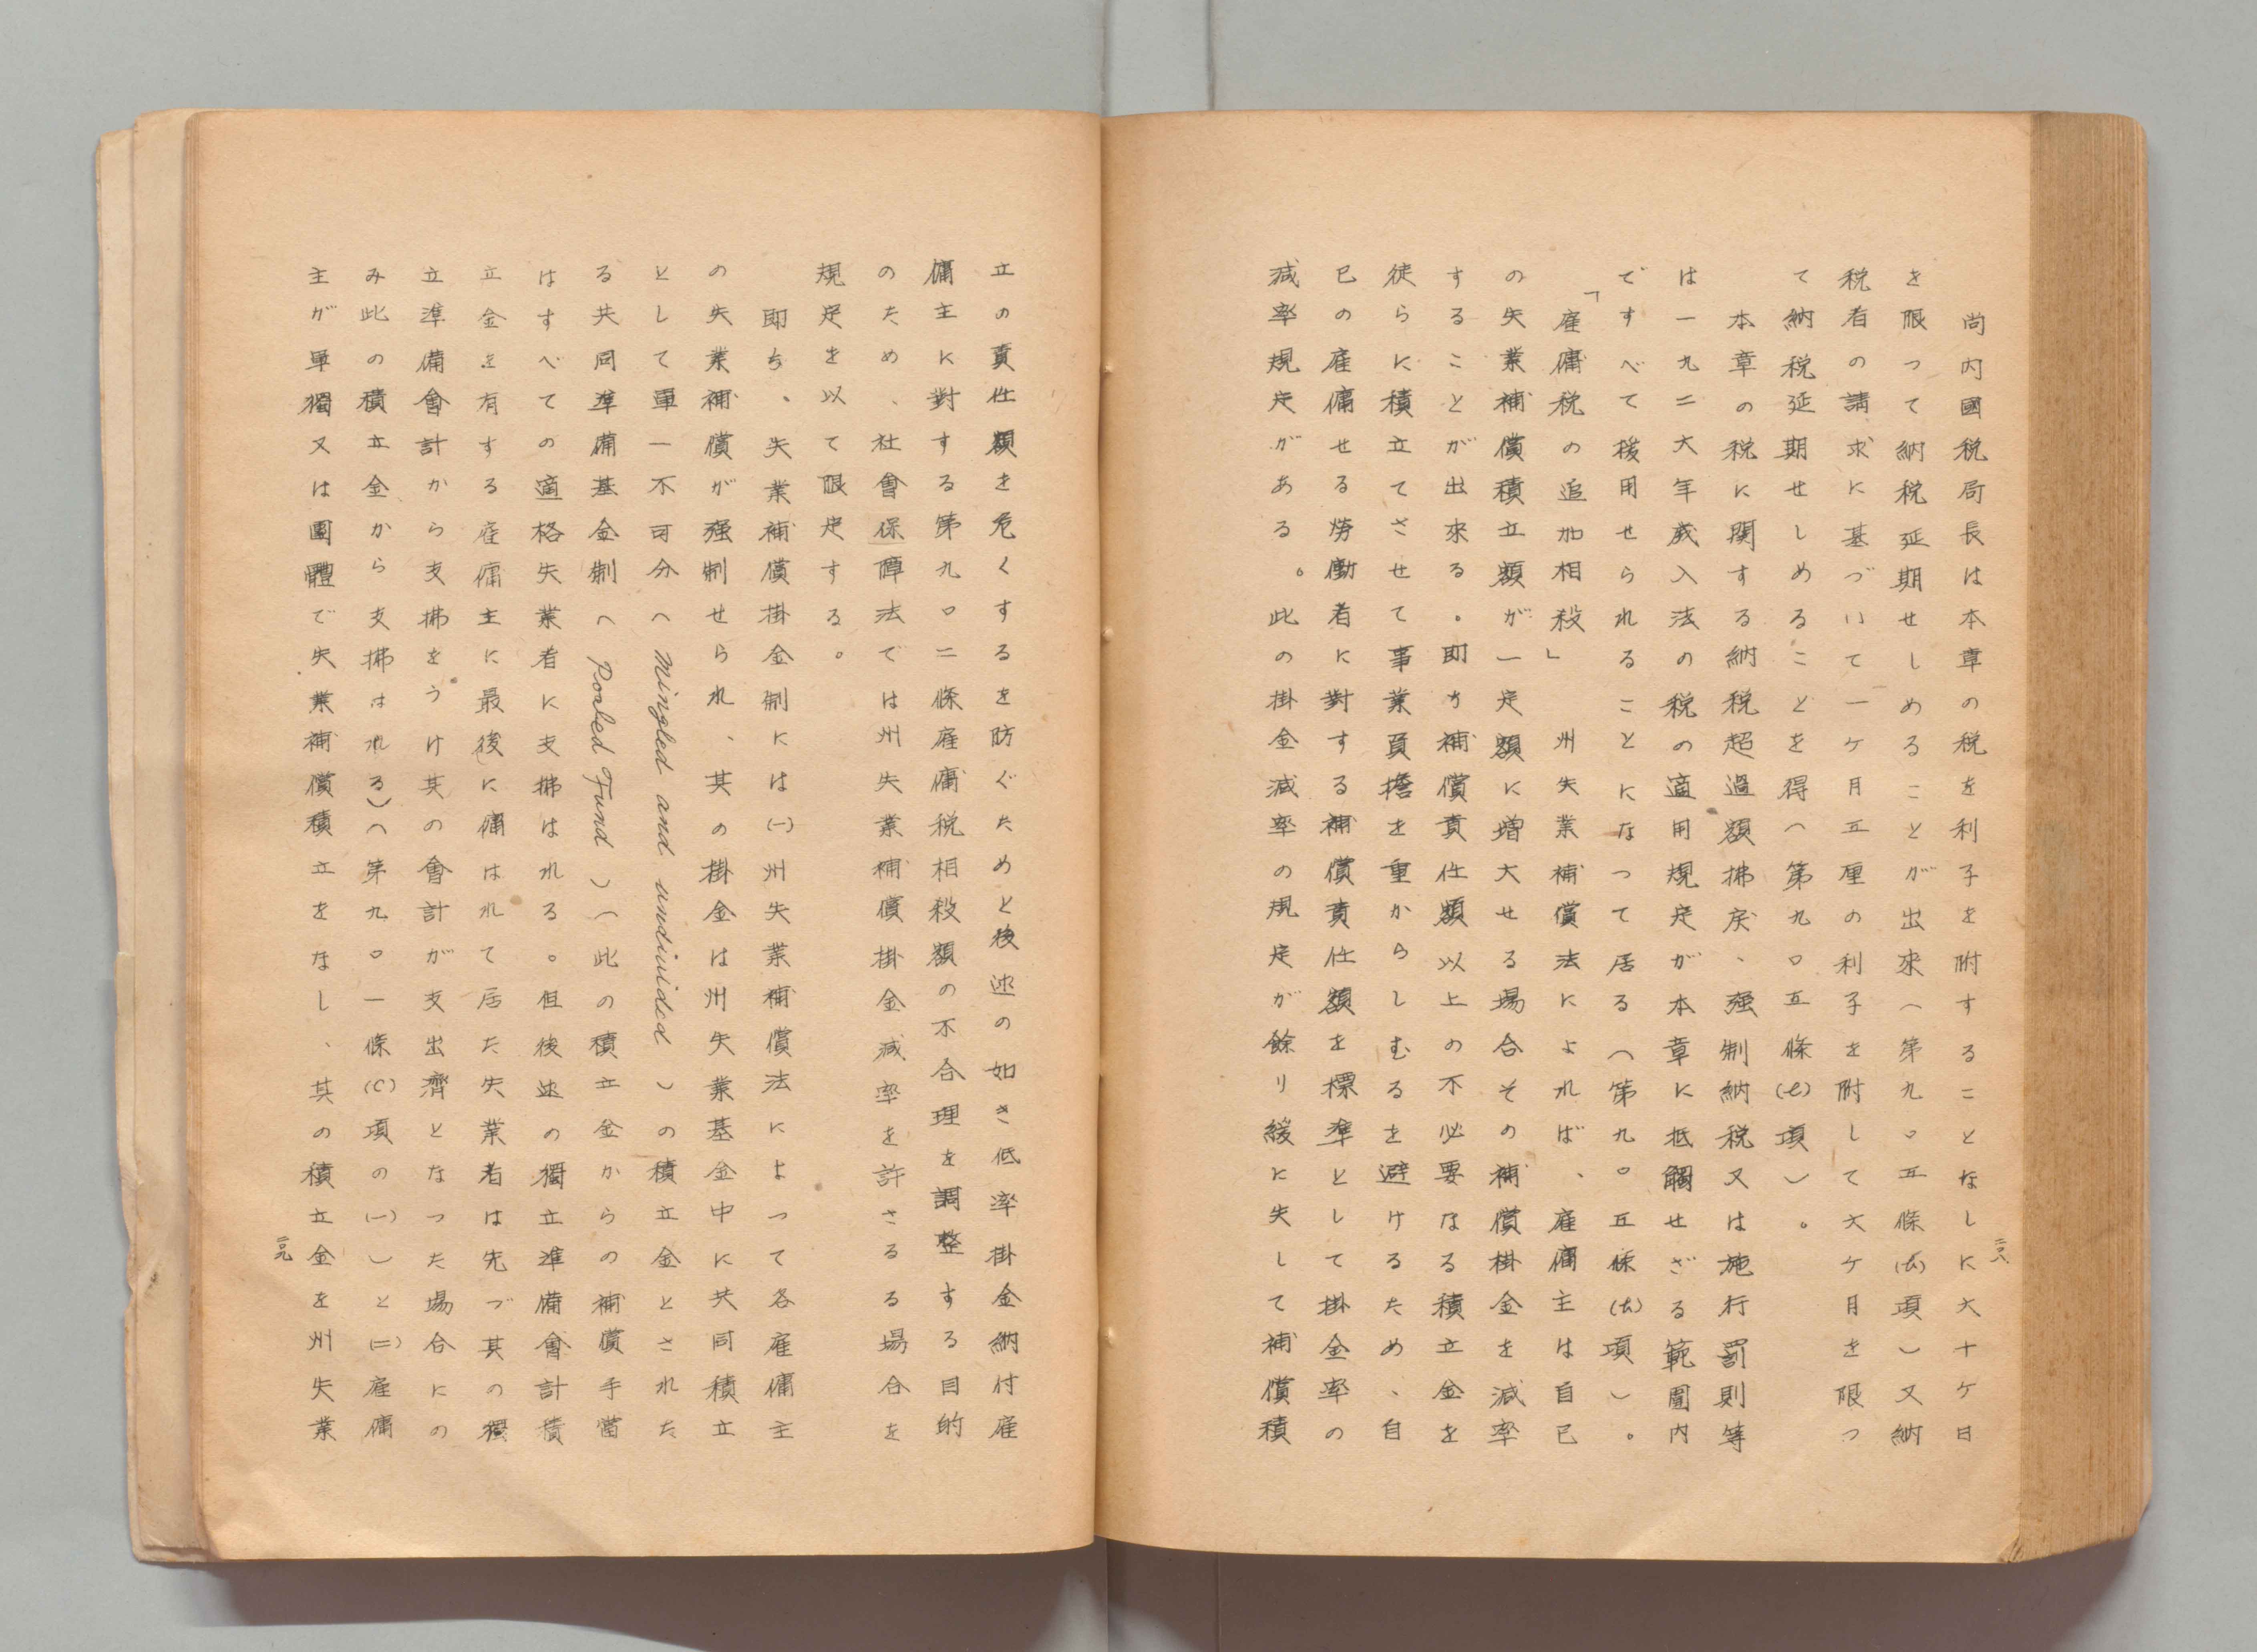 尚内國税局長は本章の税を利子を附することなしに六十ケ日
を限って納税延期せしめることが出來(第九〇五條(六)項)又納
税者の請求に基づいて一ケ月五厘の利子を附して六ケ月を限つ
て納税延期せしめることを得(第九〇五條(七)項)。
本章の税に関する納税超過額拂戻、強制納税又は施行罰則等
は一九二六年歳入法の税の適用規定が本章に抵觸せざる範圍内
ですべて援用せられることになつて居る(第九〇五條(六)項)。
「雇傭税の追加相殺」 州失業補償法によれば、雇傭主は自己
の失業補償積立額が一定額に増大せる場合その補償掛金を減率
することが出來る。即ち補償責任額以上の不必要なる積立金を
徒らに積立てさせて事業負擔を重からしむるを避けるため、自
已の雇傭せる勞働者に對する補償責任額を標準として掛金率の
減率規定がある。此の掛金減率の規定が餘り緩に失して補償積
二〇八
立の責任額を危くするを防ぐためと後述の如き低率掛金納付雇
傭主に對する第九〇二條雇傭税相殺額の不合理を調整する目的
のため、社會保障法では州失業補償掛金減率を許さるる場合を
規定を以て限定する。
即ち、失業補償掛金制には(一)州失業補償法によつて各雇傭主
の失業補償が強制せられ、其の掛金は州失業基金中に共同積立
として單一不可分(Mingled and undivided)の積立金とされた
る共同準備基金制(Pooled Fund)(此の積立金からの補償手當
はすべての適格失業者に支拂はれる。但後述の獨立準備會計積
立金を有する雇傭主に最後に傭はれて居た失業者は先づ其の獨
立準備會計から支拂をうけ其の會計が支出濟となつた場合にの
み此の積立金から支拂はれる)(第九〇一條(C)項の(一))と(二)雇傭
主が單獨又は團體で失業補償積立をなし、其の積立金を州失業
二〇九